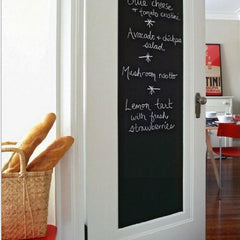 Blue cheese
& tomato crostini
Avocado & chickpea
salad
Mushroom risotto
Lemon tart
with fresh
strawberries